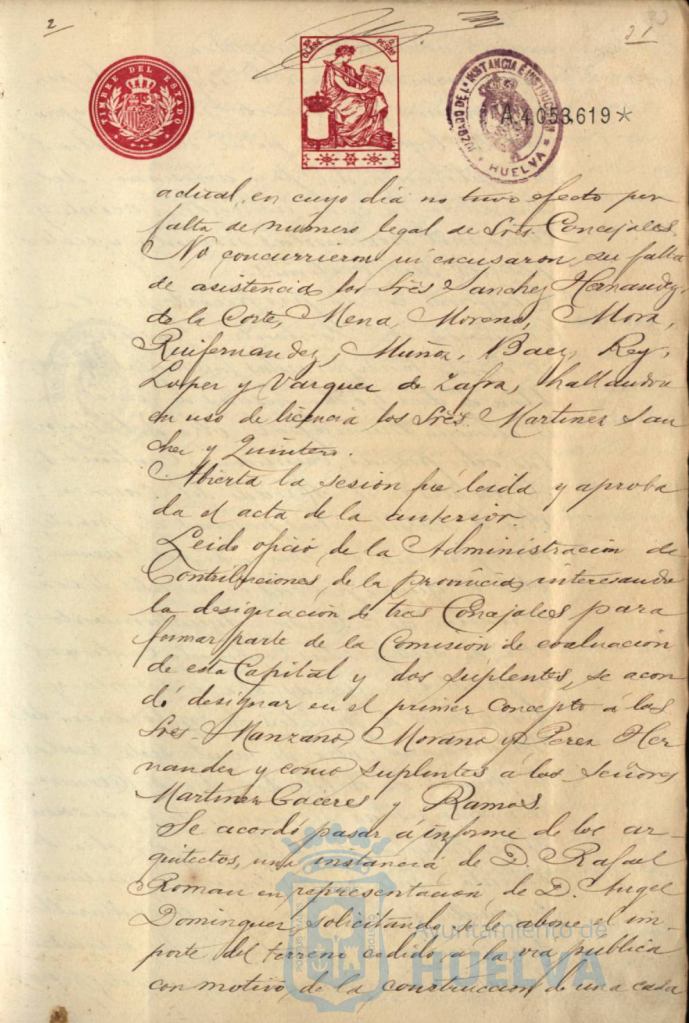 2
21
TIMBRE DEL ESTADO
CLASE
PESOS
JUZGADO DE 1ª INSTANCIA É INSTRUCCION
HUELVA
A.4053.619*
actual, en cuyo dia no tuvo efecto por
falta de numero legal de Sres. Concejales.
No concurrieron ni escusaron su falta
de asistencia los Sres Sanchez Hernandez,
de la Corte, Mena, Moreno, Mora,
Ruifernandez, Muñoz, Baez, Rey,
Lopez y Vazquez de Zafra, hallandose
en uso de licencia los Sres. Martinez San
chez y Quintero.
Abierta la sesion fué leida y aproba
da el acta de la anterior.
Leido oficio de la Administracion de
Contribuciones de la provincia, interesando
la designacion de tres Concejales para
formar parte de la Comision de evaluacion
de esta Capital y dos suplentes, se acor
dó designar en el primer concepto á los
Sres. Manzano, Morano y Perez Her
nandez y como suplentes á los Señores
Martinez Caceres y Ramos.
Se acordó pasar á informe de los ar-
quitectos, una instancia de D. Rafael
Roman en representacion de D. Angel
Dominguez, solicitando se le abone el im
porte del terreno cedido á la via publica
con motivo de la construccion de una casa
Ayuntamiento de
HUELVA